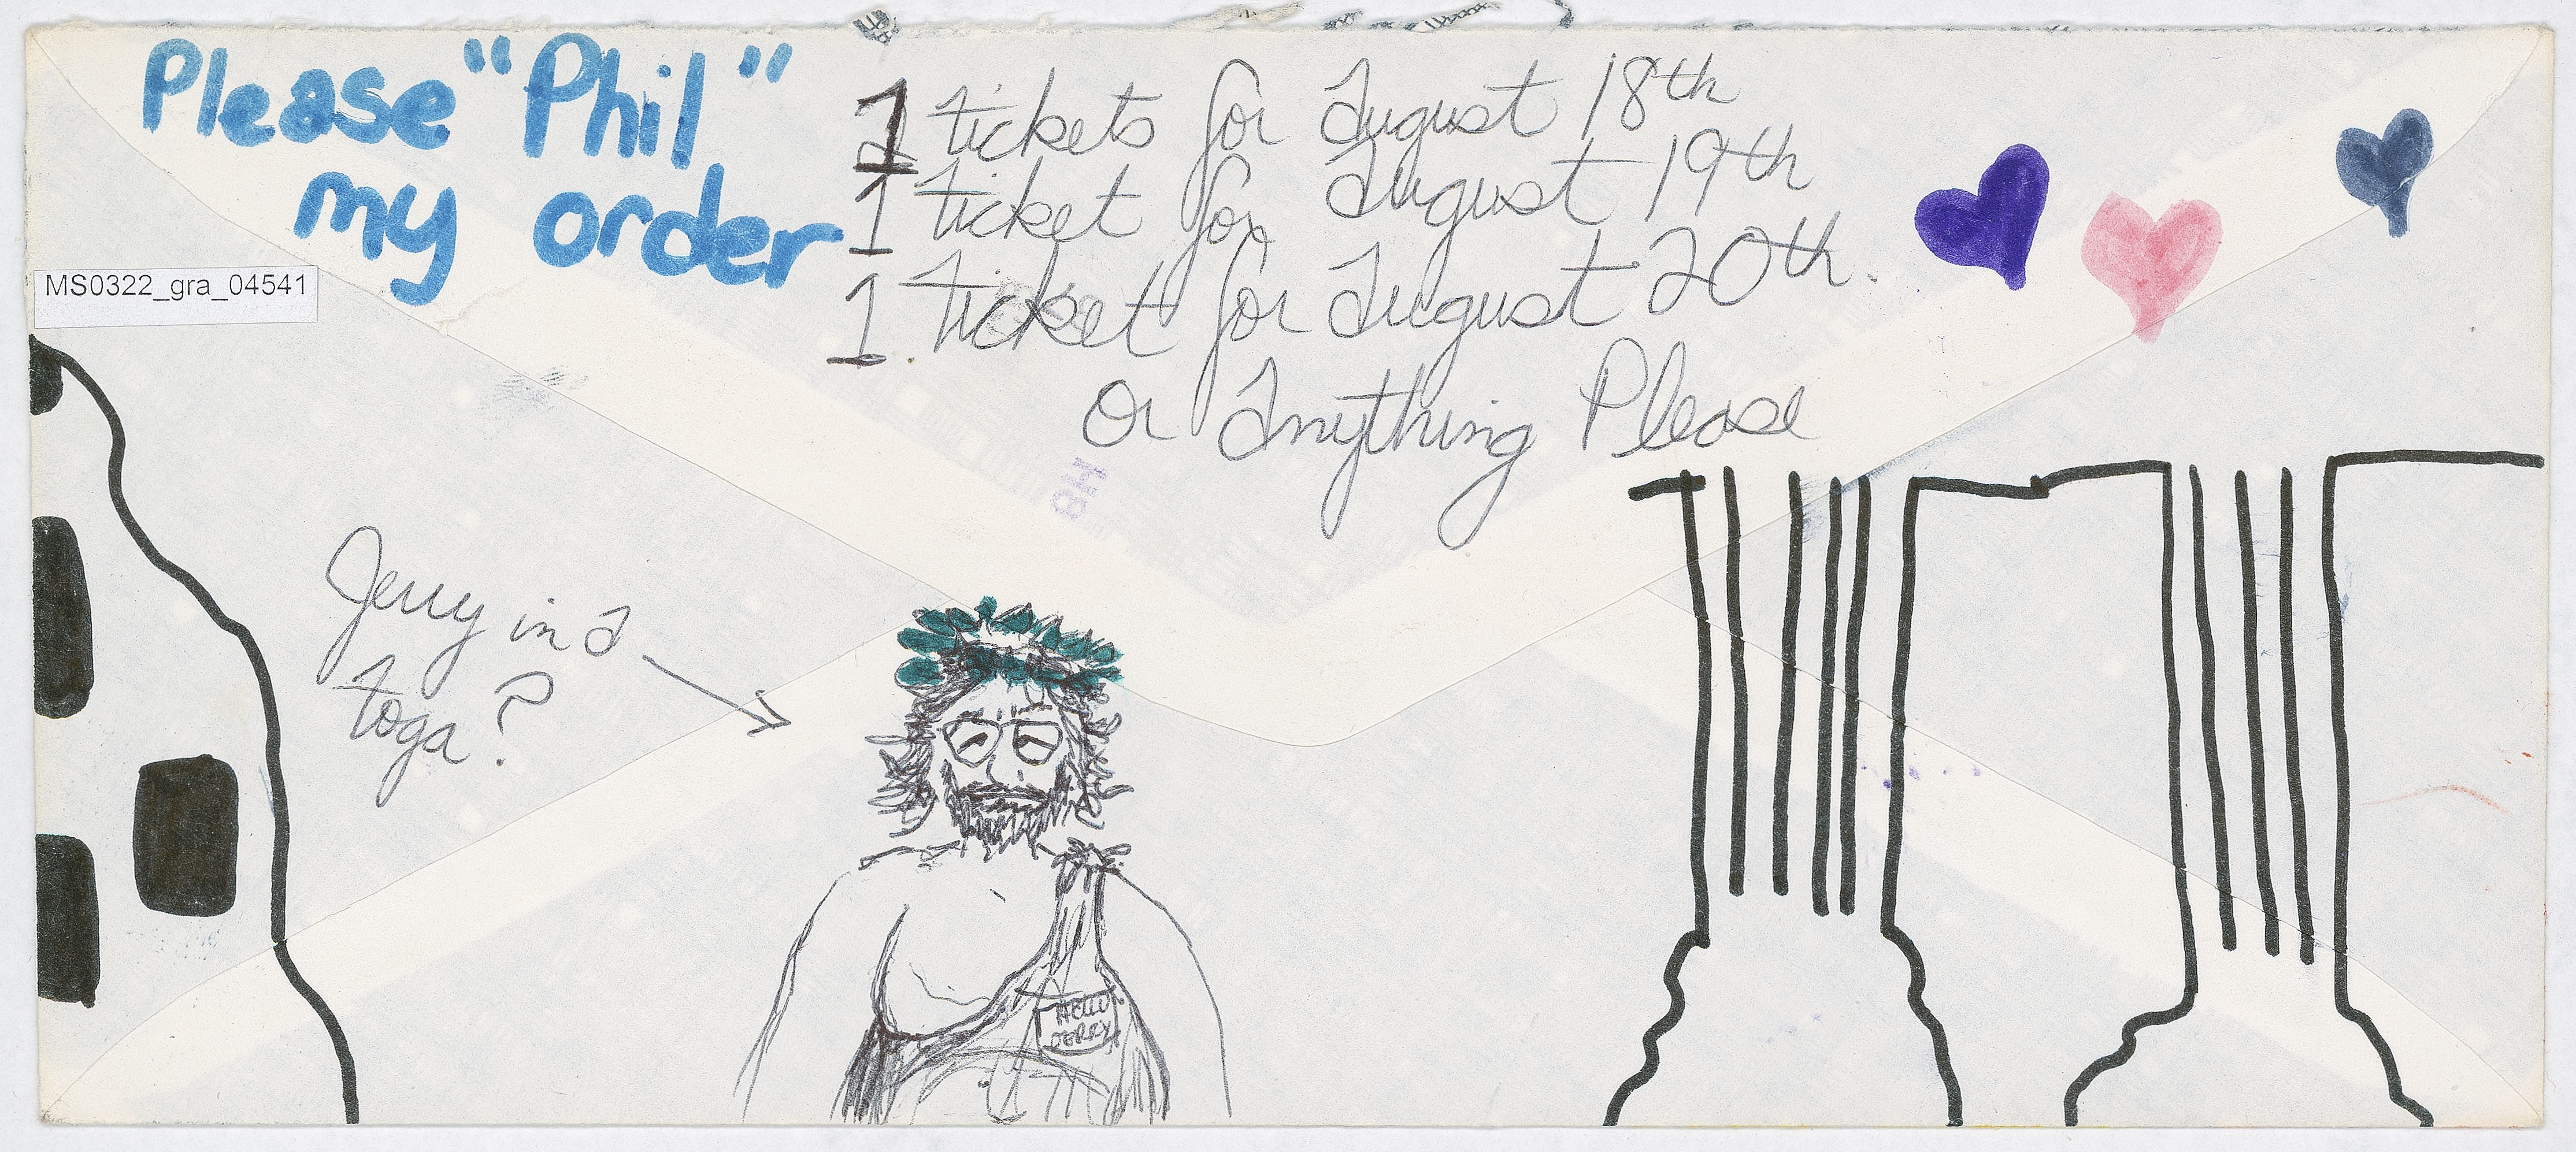 Please "Phil"
my order
1 tickets for August 18th
1 ticket for August 19th
1 ticket for August 20th.
Or Anything Please
MS0322_gra_04541
HB
Jerry in a
toga?
HELLO
JERRY